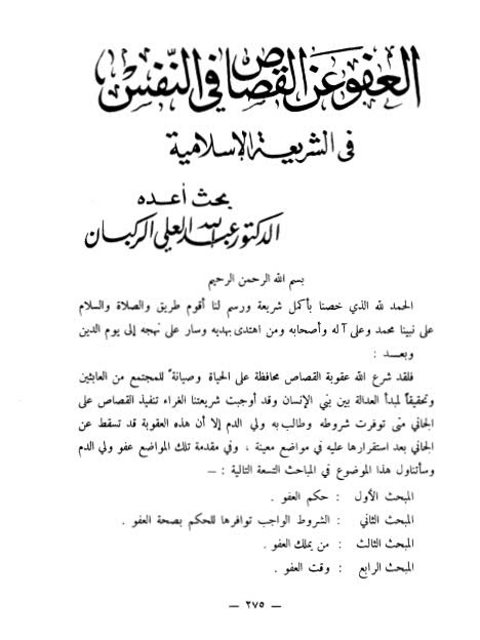 العفو عن القصاص في النفس
في الشريعة الإسلامية
بحث أعده
الدكتور عبد الله العلي الركبان
بسم الله الرحمن الرحيم
الحمد لله الذي خصنا بأكمل شريعة ورسم لنا أقوم طريق والصلاة والسلام
على نبينا محمد وعلى آله وأصحابه ومن اهتدى بهديه وسار على نهجه إلى يوم الدين
وبعد :
فلقد شرع الله عقوبة القصاص محافظة على الحياة وصيانة للمجتمع من العابثين
وتحقيقاً لمبدأ العدالة بين بني الإنسان وقد أوجبت شريعتنا الغراء تنفيذ القصاص على
الجاني متى توفرت شروطه وطالب به ولي الدم إلا أن هذه العقوبة قد تسقط عن
الجاني بعد استقرارها عليه في مواضع معينة ، وفي مقدمة تلك المواضع عفو ولي الدم
وسأتناول هذا الموضوع في المباحث التسعة التالية : —
المبحث الأول : حكم العفو .
المبحث الثاني : الشروط الواجب توافرها للحكم بصحة العفو .
المبحث الثالث : من يملك العفو .
المبحث الرابع : وقت العفو .
— ٢٧٥ —